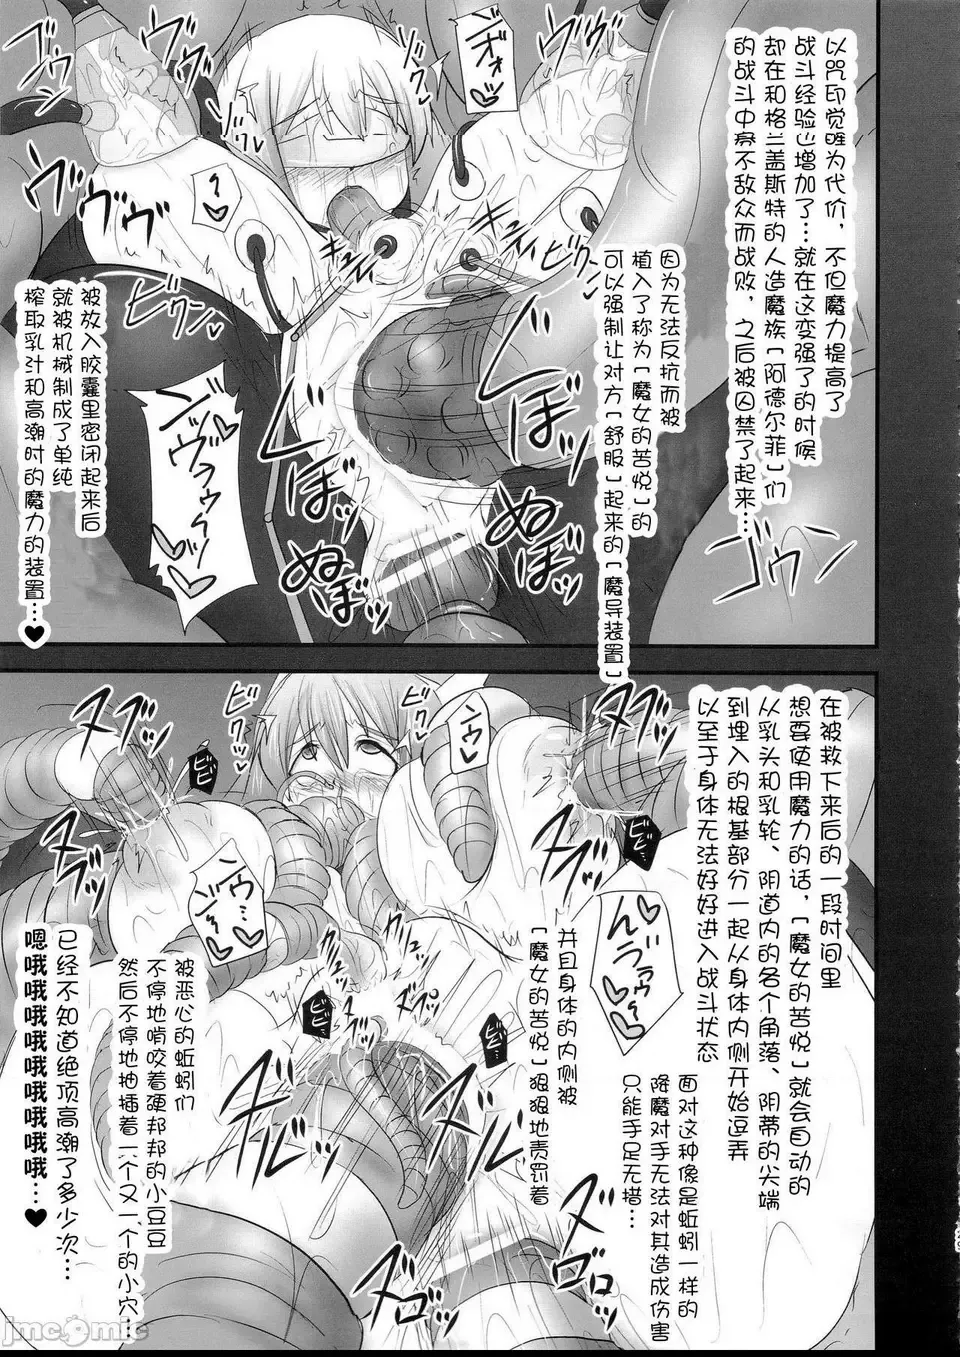 以咒印觉醒为代价，不但魔力提高了
战斗经验也增加了…就在这变强了的时候
却在和格兰盖斯特的人造魔族「阿德尔菲」们
的战斗中寡不敌众而战败，之后被囚禁了起来…
因为无法反抗而被
植入了称为「魔女的苦悦」的
可以强制让对方「舒服」起来的「魔导装置」
被放入胶囊里密闭起来后
就被机械制成了单纯
榨取乳汁和高潮时的魔力的装置…♥
ンギォォ
ンヴフゥゥッ
ヴヴヴッ
ゾヴゾヴッ
ビクンッ
ビクンッ
ずぼっ
じゅぼっ
ぬぼっ
ぬぼぬぼっ
ゴウンッ
在被救下来后的一段时间里
想要使用魔力的话，「魔女的苦悦」就会自动的
从乳头和乳轮、阴道内的各个角落、阴蒂的尖端
到埋入的根基部分一起从身体内侧开始逗弄
以至于身体无法好好进入战斗状态
面对这种像是蚯蚓一样的
降魔对手无法对其造成伤害
只能手足无措…
并且身体的内侧被
「魔女的苦悦」狠狠地责罚着
被恶心的蚯蚓们
不停地啃咬着硬邦邦的小豆豆
然后不停地抽插着一个又一个的小穴…
已经不知道绝顶高潮了多少次…
嗯哦哦哦哦哦哦哦哦…♥
ヌブッ
ヌブッ
ビクッ
ビクッ
ビビッ
ビビッ
ビビッ
ビビッ
ンウッ
んうぅっ
ズッ
ズボッ
ゾロロッ
jmcomic